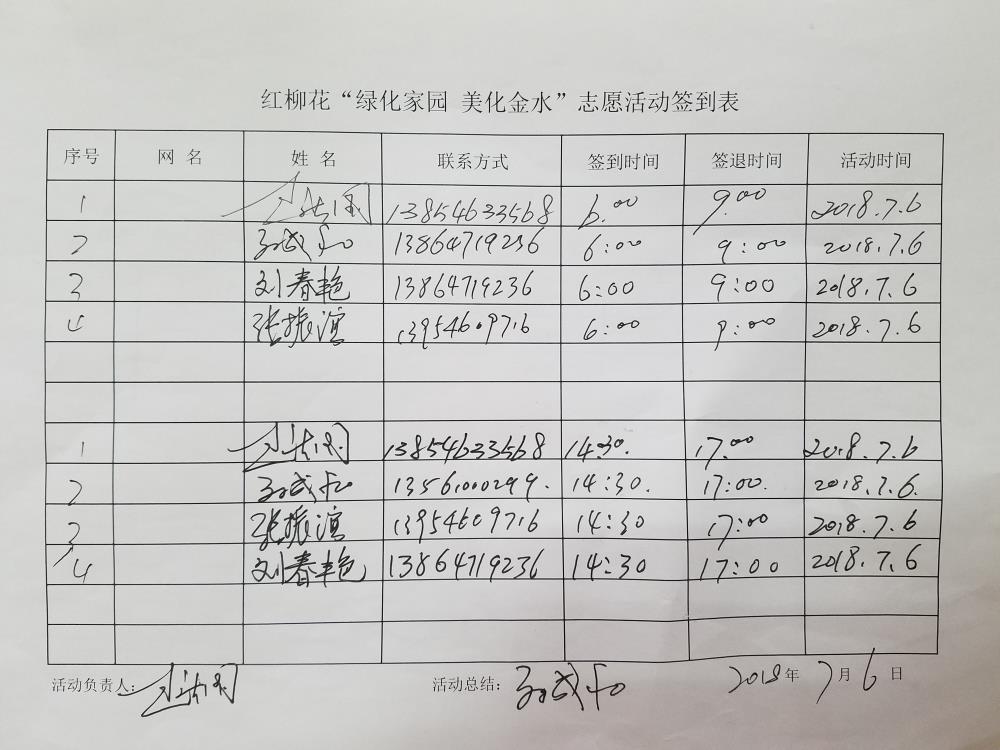 红柳花“绿化家园 美化金水”志愿活动签到表
序号 网 名 姓 名 联系方式 签到时间 签退时间 活动时间
1 13854633568 6.00 9.00 2018.7.6
2 13864719236 6:00 9:00 2018.7.6
3 刘春艳 13864719236 6:00 9:00 2018.7.6
4 张振谊 13954609716 6:00 9:00 2018.7.6
1 13854633568 14:30. 17.00 2018.7.6
2 13561000299. 14:30. 17:00. 2018.7.6.
3 张振谊 13954609716 14:30 17:00 2018.7.6
4 刘春艳 13864719236 14:30 17:00 2018.7.6
活动负责人: 活动总结: 2018年 7月 6日